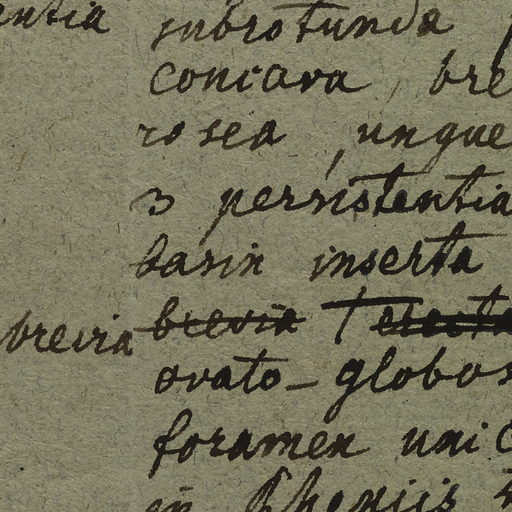 entia subrotunda
concava, bre
rosea, ungue
3 persistentia
basin inserta
brevia brevia erecta
ovato-globos
foramen uni
in